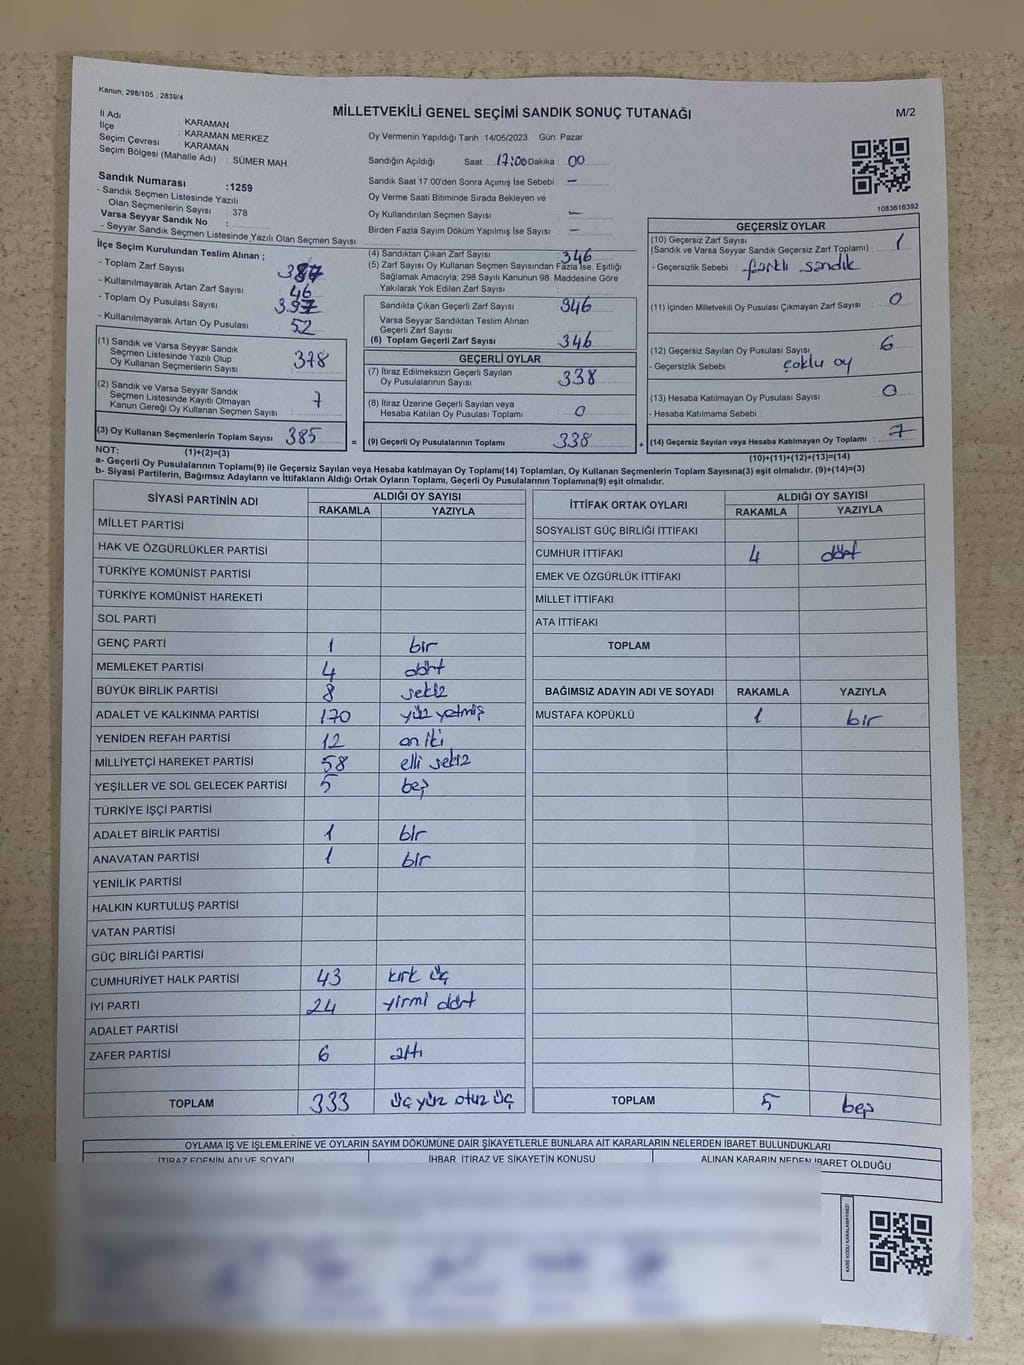 Kanun; 298/105 , 2839/4
MİLLETVEKİLİ GENEL SEÇİMİ SANDIK SONUÇ TUTANAĞI
M/2
İl Adı : KARAMAN
İlçe : KARAMAN MERKEZ
Seçim Çevresi KARAMAN
Seçim Bölgesi (Mahalle Adı) : SÜMER MAH.
Oy Vermenin Yapıldığı Tarih : 14/05/2023 Gün: Pazar
Sandığın Açıldığı Saat: 17:00 Dakika : 00
Sandık Saat 17:00'den Sonra Açımış İse Sebebi : —
Oy Verme Saati Bitiminde Sırada Bekleyen ve
Oy Kullandırılan Seçmen Sayısı : —
Birden Fazla Sayım Döküm Yapılmış İse Sayısı : —
1083616392
Sandık Numarası :1259
- Sandık Seçmen Listesinde Yazılı
Olan Seçmenlerin Sayısı : 378
Varsa Seyyar Sandık No :
- Seyyar Sandık Seçmen Listesinde Yazılı Olan Seçmen Sayısı:
İlçe Seçim Kurulundan Teslim Alınan ;
- Toplam Zarf Sayısı
- Kullanılmayarak Artan Zarf Sayısı 46
- Toplam Oy Pusulası Sayısı
- Kullanılmayarak Artan Oy Pusulası 52
(1) Sandık ve Varsa Seyyar Sandık
Seçmen Listesinde Yazılı Olup
Oy Kullanan Seçmenlerin Sayısı : 378
(2) Sandık ve Varsa Seyyar Sandık
Seçmen Listesinde Kayıtlı Olmayan
Kanun Gereği Oy Kullanan Seçmen Sayısı : 7
(3) Oy Kullanan Seçmenlerin Toplam Sayısı : 385
(1)+(2)=(3)
(4) Sandıktan Çıkan Zarf Sayısı : 346
(5) Zarf Sayısı Oy Kullanan Seçmen Sayısından Fazla İse, Eşitliği
Sağlamak Amacıyla, 298 Sayılı Kanunun 98. Maddesine Göre
Yakılarak Yok Edilen Zarf Sayısı :
Sandıkta Çıkan Geçerli Zarf Sayısı 346
Varsa Seyyar Sandıktan Teslim Alınan
Geçerli Zarf Sayısı
(6) Toplam Geçerli Zarf Sayısı : 346
GEÇERLİ OYLAR
(7) İtiraz Edilmeksizin Geçerli Sayılan
Oy Pusulalarının Sayısı : 338
(8) İtiraz Üzerine Geçerli Sayılan veya
Hesaba Katılan Oy Pusulası Toplamı : 0
= (9) Geçerli Oy Pusulalarının Toplamı : 338 +
GEÇERSİZ OYLAR
(10) Geçersiz Zarf Sayısı 1
(Sandık ve Varsa Seyyar Sandık Geçersiz Zarf Toplamı)
- Geçersizlik Sebebi : farklı sandık
(11) İçinden Milletvekili Oy Pusulası Çıkmayan Zarf Sayısı : 0
(12) Geçersiz Sayılan Oy Pusulası Sayısı : 6
- Geçersizlik Sebebi : çoklu oy
(13) Hesaba Katılmayan Oy Pusulası Sayısı : 0
- Hesaba Katılmama Sebebi :
(14) Geçersiz Sayılan veya Hesaba Katılmayan Oy Toplamı : 7
(10)+(11)+(12)+(13)=(14)
NOT:
a- Geçerli Oy Pusulalarının Toplamı(9) ile Geçersiz Sayılan veya Hesaba katılmayan Oy Toplamı(14) Toplamları, Oy Kullanan Seçmenlerin Toplam Sayısına(3) eşit olmalıdır. (9)+(14)=(3)
b- Siyasi Partilerin, Bağımsız Adayların ve İttifakların Aldığı Ortak Oyların Toplamı, Geçerli Oy Pusulalarının Toplamına(9) eşit olmalıdır.
SİYASİ PARTİNİN ADI ALDIĞI OY SAYISI
RAKAMLA YAZIYLA
MİLLET PARTİSİ
HAK VE ÖZGÜRLÜKLER PARTİSİ
TÜRKİYE KOMÜNİST PARTİSİ
TÜRKİYE KOMÜNİST HAREKETİ
SOL PARTİ
GENÇ PARTİ 1 bir
MEMLEKET PARTİSİ 4 dört
BÜYÜK BİRLİK PARTİSİ 8 sekiz
ADALET VE KALKINMA PARTİSİ 170 yüz yetmiş
YENİDEN REFAH PARTİSİ 12 on iki
MİLLİYETÇİ HAREKET PARTİSİ 58 elli sekiz
YEŞİLLER VE SOL GELECEK PARTİSİ 5 beş
TÜRKİYE İŞÇİ PARTİSİ
ADALET BİRLİK PARTİSİ 1 bir
ANAVATAN PARTİSİ 1 bir
YENİLİK PARTİSİ
HALKIN KURTULUŞ PARTİSİ
VATAN PARTİSİ
GÜÇ BİRLİĞİ PARTİSİ
CUMHURİYET HALK PARTİSİ 43 kırk üç
İYİ PARTİ 24 yirmi dört
ADALET PARTİSİ
ZAFER PARTİSİ 6 altı
TOPLAM 333 üç yüz otuz üç
İTTİFAK ORTAK OYLARI ALDIĞI OY SAYISI
RAKAMLA YAZIYLA
SOSYALİST GÜÇ BİRLİĞİ İTTİFAKI
CUMHUR İTTİFAKI 4 dört
EMEK VE ÖZGÜRLÜK İTTİFAKI
MİLLET İTTİFAKI
ATA İTTİFAKI
TOPLAM
BAĞIMSIZ ADAYIN ADI VE SOYADI RAKAMLA YAZIYLA
MUSTAFA KÖPÜKLÜ 1 bir
TOPLAM 5 beş
OYLAMA İŞ VE İŞLEMLERİNE VE OYLARIN SAYIM DÖKÜMÜNE DAİR ŞİKAYETLERLE BUNLARA AİT KARARLARIN NELERDEN İBARET BULUNDUKLARI
İTİRAZ EDENİN ADI VE SOYADI İHBAR, İTİRAZ VE ŞİKAYETİN KONUSU ALINAN KARARIN NEDEN İBARET OLDUĞU
KARE KODU KARALAMAYINIZ!